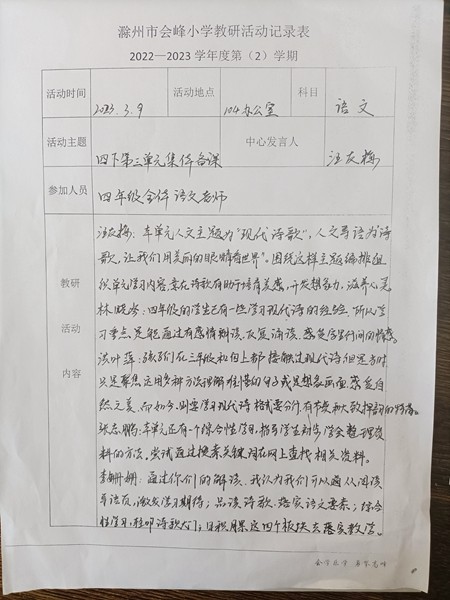 滁州市会峰小学教研活动记录表
2022—2023学年度第（2）学期
活动时间 2023.3.9 活动地点 104办公室 科目 语文
活动主题 四下第三单元集体备课 中心发言人 汪友梅
参加人员 四年级全体语文老师
教研活动内容
汪友梅：本单元人文主题为“现代诗歌”，人文导语为“诗
歌，让我们用美丽的眼睛看世界”。围绕这样主题编排组
织单元学习内容意在诗歌有助于培育美感，开发想象力，滋养心灵
林晓岑：四年级的学生已有一些学习现代诗的经验，所以学
习重点是能通过有感情朗读、反复诵读，感受字里行间的情感。
谈叶萍：孩子们在三年级和四上都接触过现代诗，但是当时
只是聚焦运用多种方法理解难懂的句子或是想象画面，感受自
然之美，而如今，则要学习现代诗格式要分行，有节奏和大致押韵的特落。
张志鹏：本单元还有一个综合性学习，指导学生初步学会整理资
料的方法，尝试通过搜索关键词在网上查找相关资料。
李姗姗：通过你们的解读，我认为我们可以通从阅读
导语页，激发学习期待；品读诗歌，落实语文要素；综合
性学习，推开诗歌大门；日积月累这四个板块去落实教学。